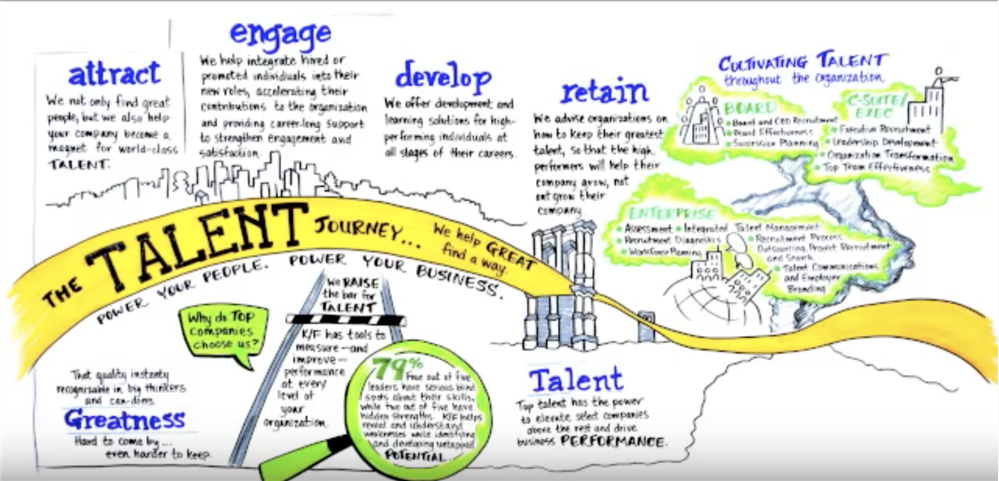 attract
We not only find great
people, but we also help
your company become a
magnet for world-class
TALENT.
engage
We help integrate hired or
promoted individuals into their
new roles, accelerating their
contributions to the organization
and providing career-long support
to strengthen engagement and
satisfaction.
develop
We offer development and
learning solutions for high-
performing individuals at
all stages of their careers.
retain
We advise organizations on
how to keep their greatest
talent, so that the high
performers will help their
company grow, not
out grow their
company
CULTIVATING TALENT
throughout the organization
BOARD
Board and CEO Recruitment
Board Effectiveness
Succession Planning
C-SUITE/
EXEC
Executive Recruitment
Leadership Development
Organization Transformation
Top Team Effectiveness
ENTERPRISE
Assessment • Integrated Talent Management
Recruitment Diagnostics
Workforce Planning
Recruitment Process
Outsourcing, Project Recruitment
and Search
Talent Communications
and Employer
Branding
THE TALENT JOURNEY...
We help GREAT
find a way.
POWER YOUR PEOPLE. POWER YOUR BUSINESS.
Why do TOP
companies
choose us?
We RAISE
the bar for
TALENT
K/F has tools to
measure—and
improve—
performance
at every
level of
your
organization.
79%
out of five
leaders have serious blind
spots about their skills,
while two out of five have
hidden strengths. K/F helps
reveal and understand
weaknesses while identifying
and developing untapped
POTENTIAL.
That quality instantly
recognizable in big thinkers
and can-doers.
Greatness
Hard to come by...
even harder to keep.
Talent
Top talent has the power
to elevate select companies
above the rest and drive
business PERFORMANCE.